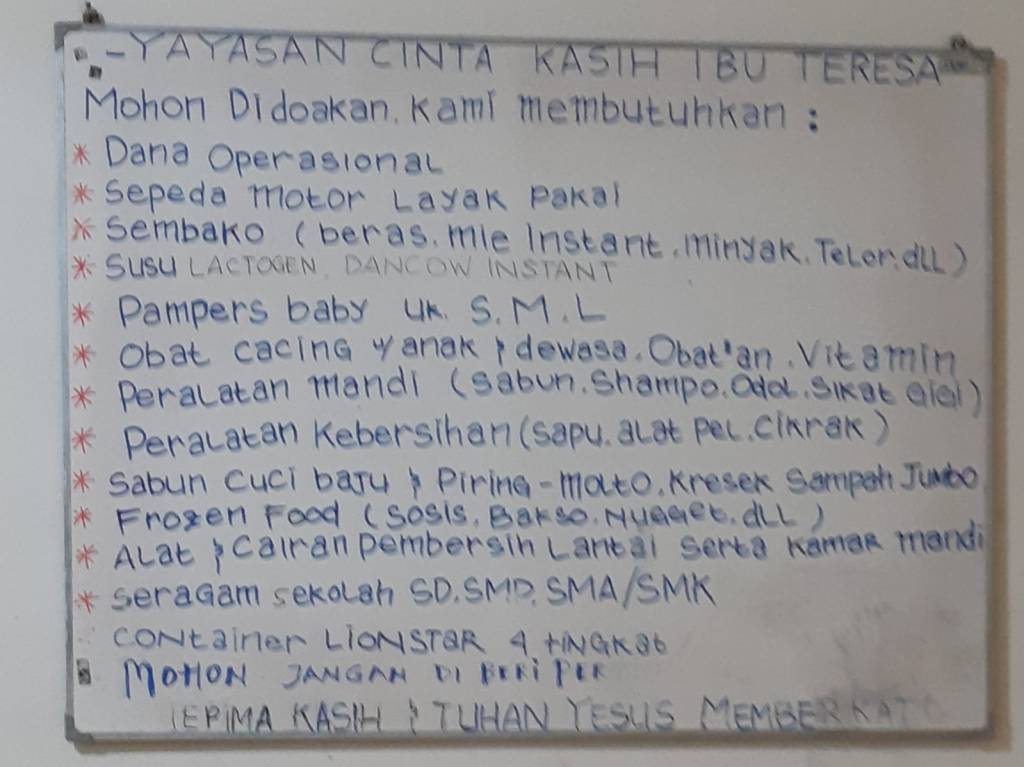 -YAYASAN CINTA KASIH IBU TERESA
Mohon Didoakan, Kami membutuhkan :
* Dana Operasional
* Sepeda Motor Layak Pakai
* Sembako (beras, mie Instant, Minyak, Telor, dll)
* Susu LACTOGEN, DANCOW INSTANT
* Pampers baby uk. S, M, L
* Obat cacing y anak & dewasa, Obat'an, Vitamin
* Peralatan mandi (sabun, Shampo, Odol, Sikat Gigi)
* Peralatan Kebersihan (sapu, alat pel, cikrak)
* Sabun cuci baju & Piring - molto, Kresek Sampah Jumbo
* Frozen Food (sosis, Bakso, Nugget, dll)
* Alat & Cairan pembersih Lantai serta Kamar mandi
* seragam sekolah SD, SMP, SMA/SMK
Container LIONSTAR 4 tingkat
MOHON JANGAN DI BERI PER
TERIMA KASIH & TUHAN YESUS MEMBERKATI